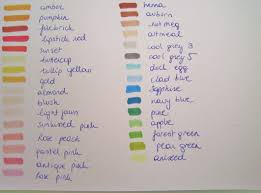 amber
pumpkin
firebrick
lipstick red
sunset
buttercup
tulip yellow
gold
almond
blush
light fawn
sunkissed pink
rose peach
pastel pink
antique pink
rose pink
henna
auburn
nutmeg
oatmeal
cool grey 3
cool grey 5
duck egg
cloud blue
sapphire
navy blue
pine
apple
forest green
pear green
aniseed